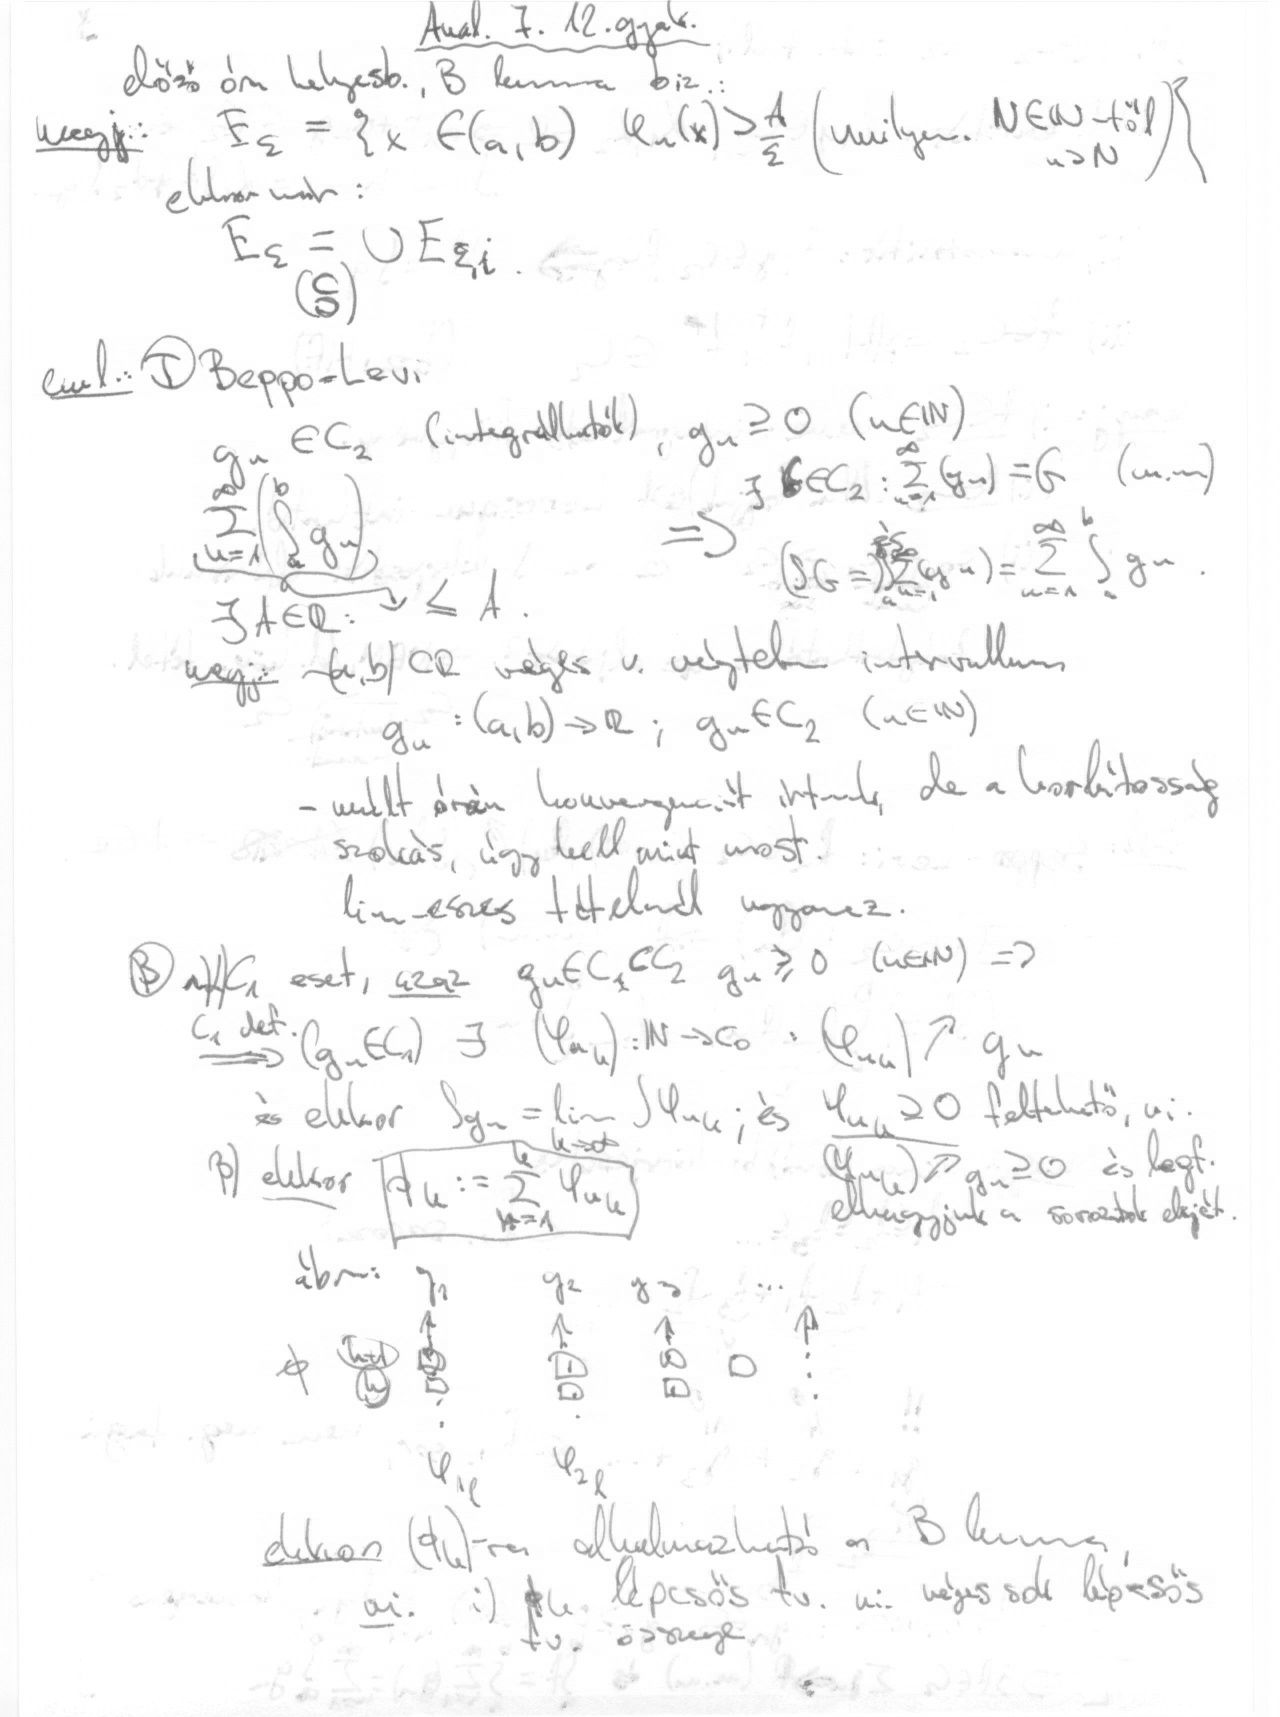 Anal. 7. 12. gyak.
előző óra helyesb., B lemma biz.:
megj.: E_ε = {x ∈ (a,b) φ_n(x) > A/ε (milyen. N∈ℕ-től n>N)}
ekkor már:
E_ε = ∪ E_ε,i.
(⊆)
eml.: I Beppo-Levi
g_n ∈ C_2 (integrálhatók), g_n ≥ 0 (n∈ℕ)
∑_{n=1}^∞ (∫_a^b g_n) ⇒ ∃ G∈C_2 : ∑_{n=1}^∞ (g_n) = G (m.m)
∃ A∈ℝ: ≤ A. és (∫G =) ∫_a^b ∑_{n=1}^∞ (g_n) = ∑_{n=1}^∞ ∫_a^b g_n.
megj: -(a,b) ⊂ ℝ véges v. végtelen intervallum
g_n : (a,b) → ℝ ; g_n ∈ C_2 (n∈ℕ)
- múlt órán konvergenciát írtunk, de a korlátosság
szokás, úgy kell mint most.
lim-eszes tételnél ugyanez.
B C_1 eset, azaz g_n ∈ C_1 ⊂ C_2 g_n ≥ 0 (n∈ℕ) ⇒
C_1 def. ⇒ (g_n∈C_1) ∃ (φ_nk) : ℕ → C_0 : (φ_nk) ↗ g_n
és ekkor ∫g_n = lim_{k→∞} ∫φ_nk ; és φ_nk ≥ 0 feltehető, ui.
β) ekkor ϕ_k := ∑_{n=1}^k φ_nk (φ_nk) ↗ g_n ≥ 0 és legf.
elhagyjuk a sorozatok elejét.
ábra: g_1 g_2 g_3 ...
ϕ k+1
k
φ_1l φ_2l
ekkor (ϕ_k)-ra alkalmazható a B lemma,
ui. i) ϕ_k lépcsős fv. ui. véges sok lépcsős
fv. összege